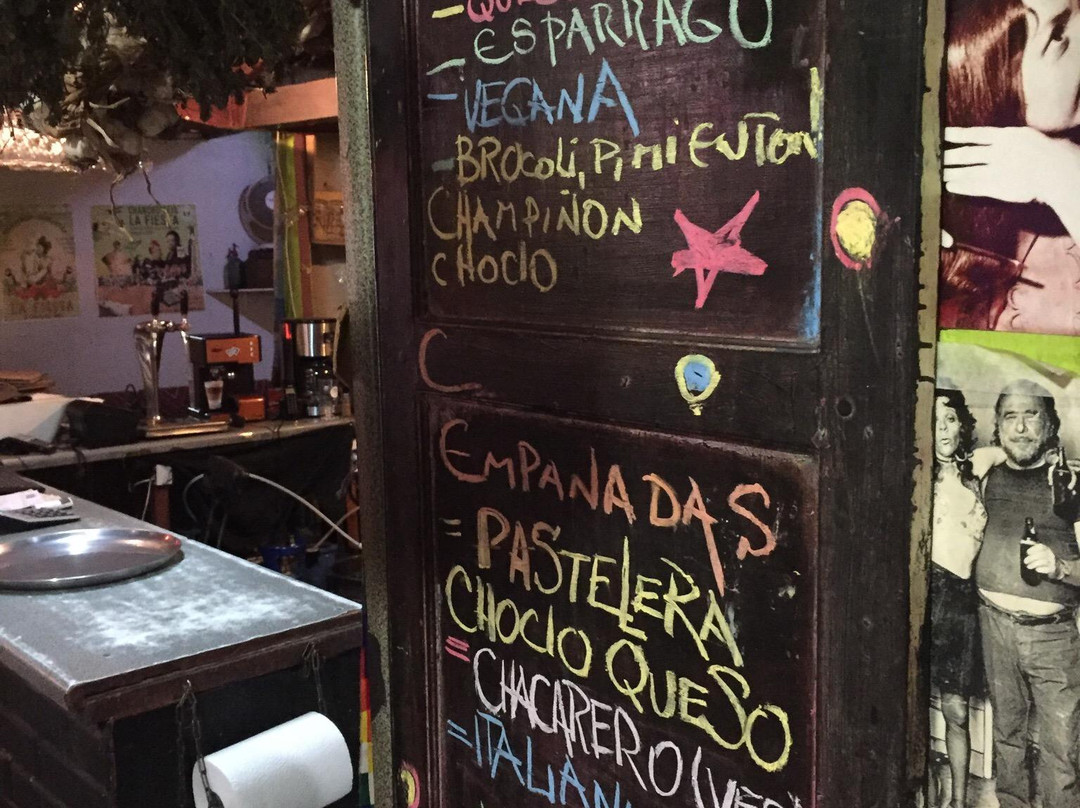 - ESPARRAGO
- VEGANA
- BROCOLi, PiMiENTON
CHAMPIÑON
CHOCLO
C
EMPANADAS
= PASTELERA
CHOCLO QUESO
= CHACARERO (VEG
= ITALIAN
LA FIESTA